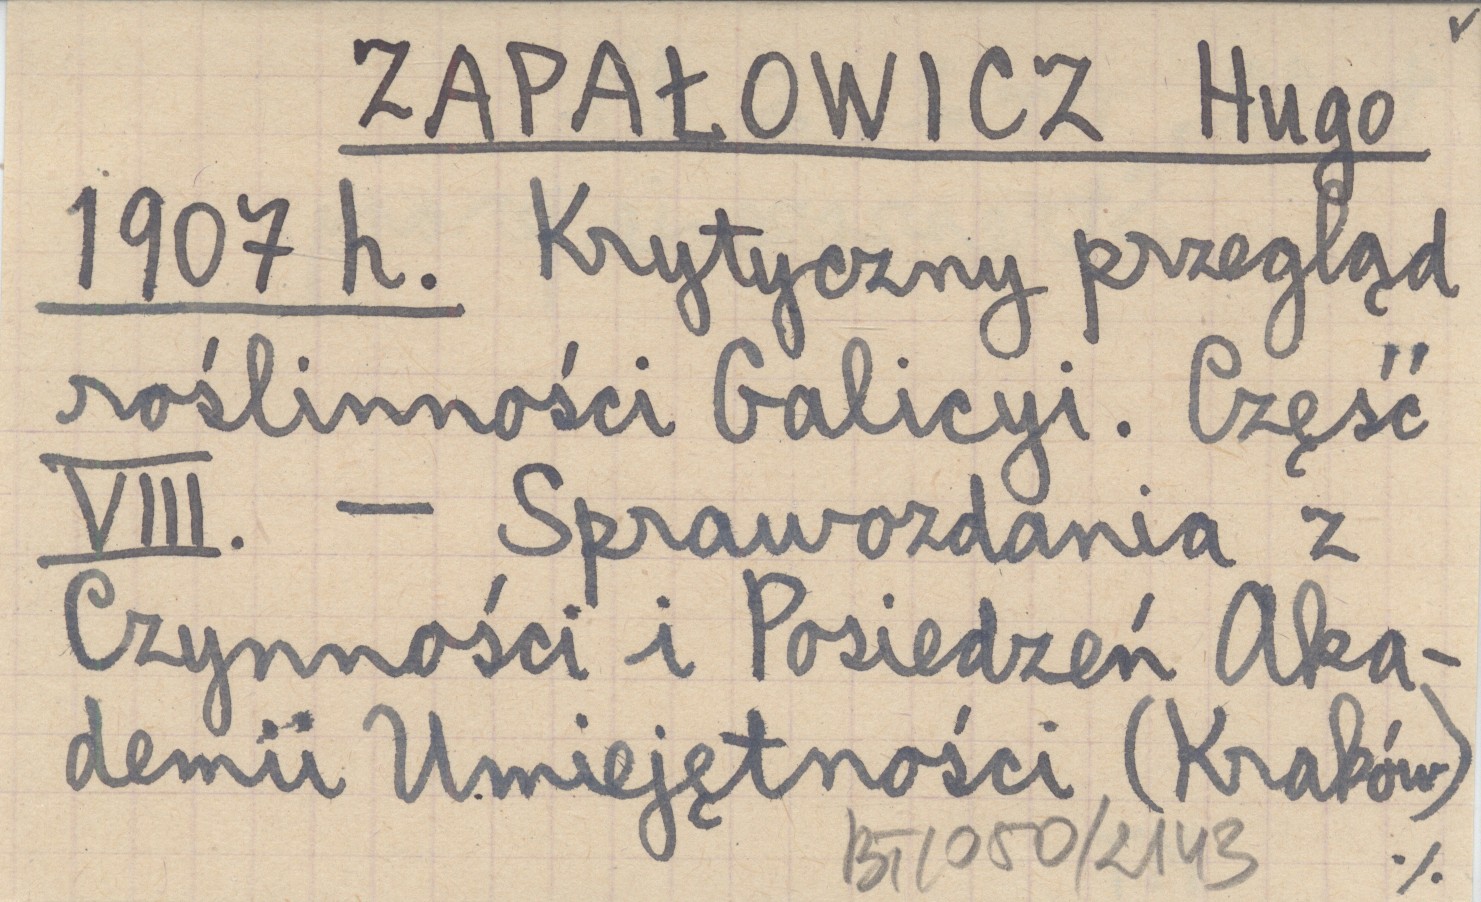 ZAPAŁOWICZ Hugo
1907 h. Krytyczny przegląd
roślinności Galicyi. Część
VIII. — Sprawozdania z
Czynności i Posiedzeń Aka-
demii Umiejętności (Kraków)
BT/050/2143
./.